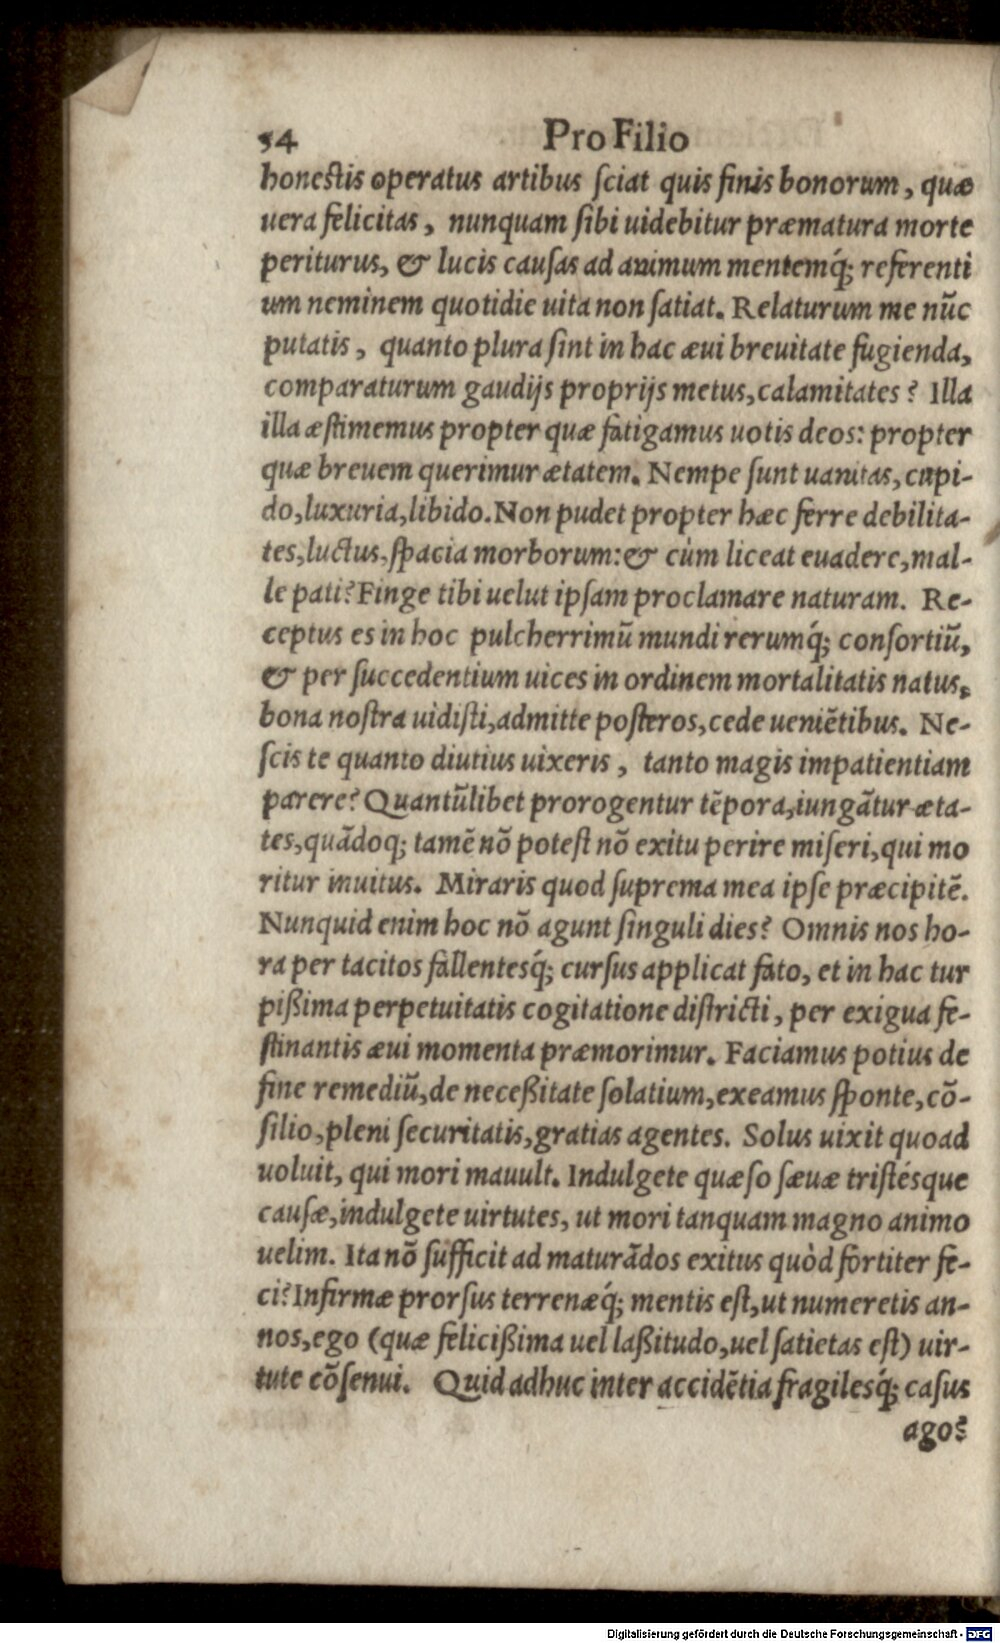 54 Pro Filio
honestis operatus artibus ſciat quis finis bonorum, quæ
uera felicitas, nunquam ſibi uidebitur præmatura morte
periturus, & lucis cauſas ad animum mentemq́; referenti
um neminem quotidie uita non ſatiat. Relaturum me nūc
putatis, quanto plura ſint in hac æui breuitate fugienda,
comparaturum gaudijs proprijs metus, calamitates? Illa
illa æſtimemus propter quæ fatigamus uotis deos: propter
quæ breuem querimur ætatem. Nempe ſunt uanitas, cupi-
do, luxuria, libido. Non pudet propter hæc ferre debilita-
tes, luctus, ſpacia morborum: & cùm liceat euadere, mal-
le pati? Finge tibi uelut ipſam proclamare naturam. Re-
ceptus es in hoc pulcherrimū mundi rerumq́; conſortiū,
& per ſuccedentium uices in ordinem mortalitatis natus,
bona noſtra uidiſti, admitte poſteros, cede ueniētibus. Ne-
ſcis te quanto diutius uixeris, tanto magis impatientiam
parere? Quantūlibet prorogentur tēpora, iungātur æta-
tes, quādoq; tamē nō poteſt nō exitu perire miſeri, qui mo
ritur inuitus. Miraris quod ſuprema mea ipſe præcipitē.
Nunquid enim hoc nō agunt ſinguli dies? Omnis nos ho-
ra per tacitos fallentesq́; curſus applicat fato, et in hac tur
pißima perpetuitatis cogitatione diſtricti, per exigua fe-
ſtinantis æui momenta præmorimur. Faciamus potius de
fine remediū, de neceßitate ſolatium, exeamus ſponte, cō-
ſilio, pleni ſecuritatis, gratias agentes. Solus uixit quoad
uoluit, qui mori mauult. Indulgete quæſo ſæuæ triſtésque
cauſæ, indulgete uirtutes, ut mori tanquam magno animo
uelim. Ita nō ſufficit ad maturādos exitus quòd fortiter fe-
ci? Infirmæ prorſus terrenæq́; mentis eſt, ut numeretis an-
nos, ego (quæ felicißima uel laßitudo, uel ſatietas eſt) uir-
tute cōſenui. Quid adhuc inter accidētia fragilesq́; caſus
ago?
Digitalisierung gefördert durch die Deutsche Forschungsgemeinschaft - DFG